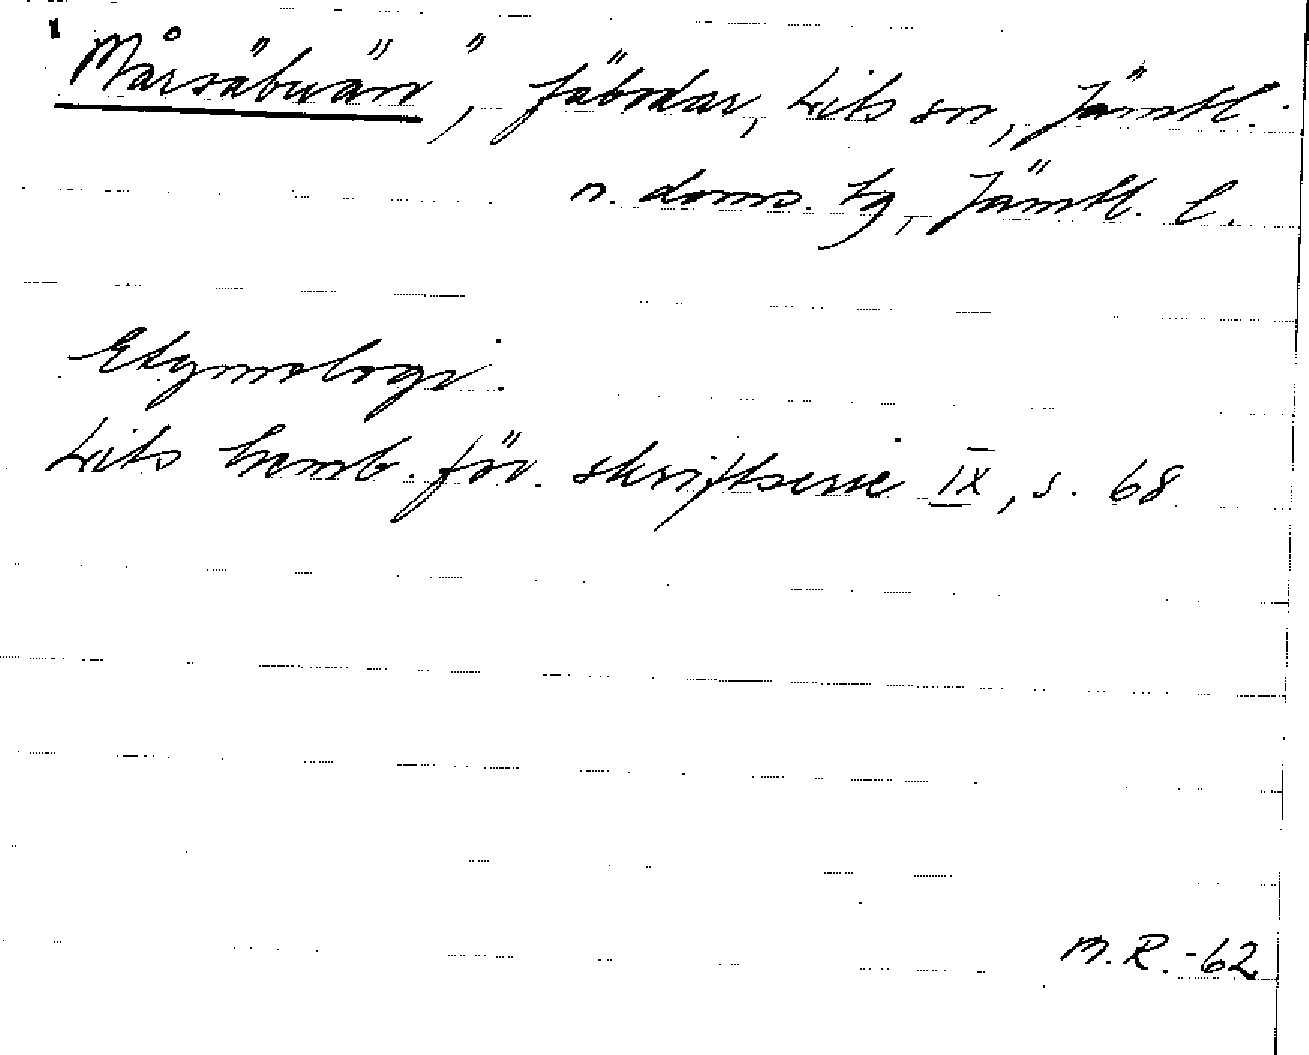 "Mårsäbuän", fäbodar, Lits sn, Jämtl.
n. doms. tg, Jämtl. l.
Etymologi.
Lits hemb. för. skriftserie IX, s. 68
M.R.-62